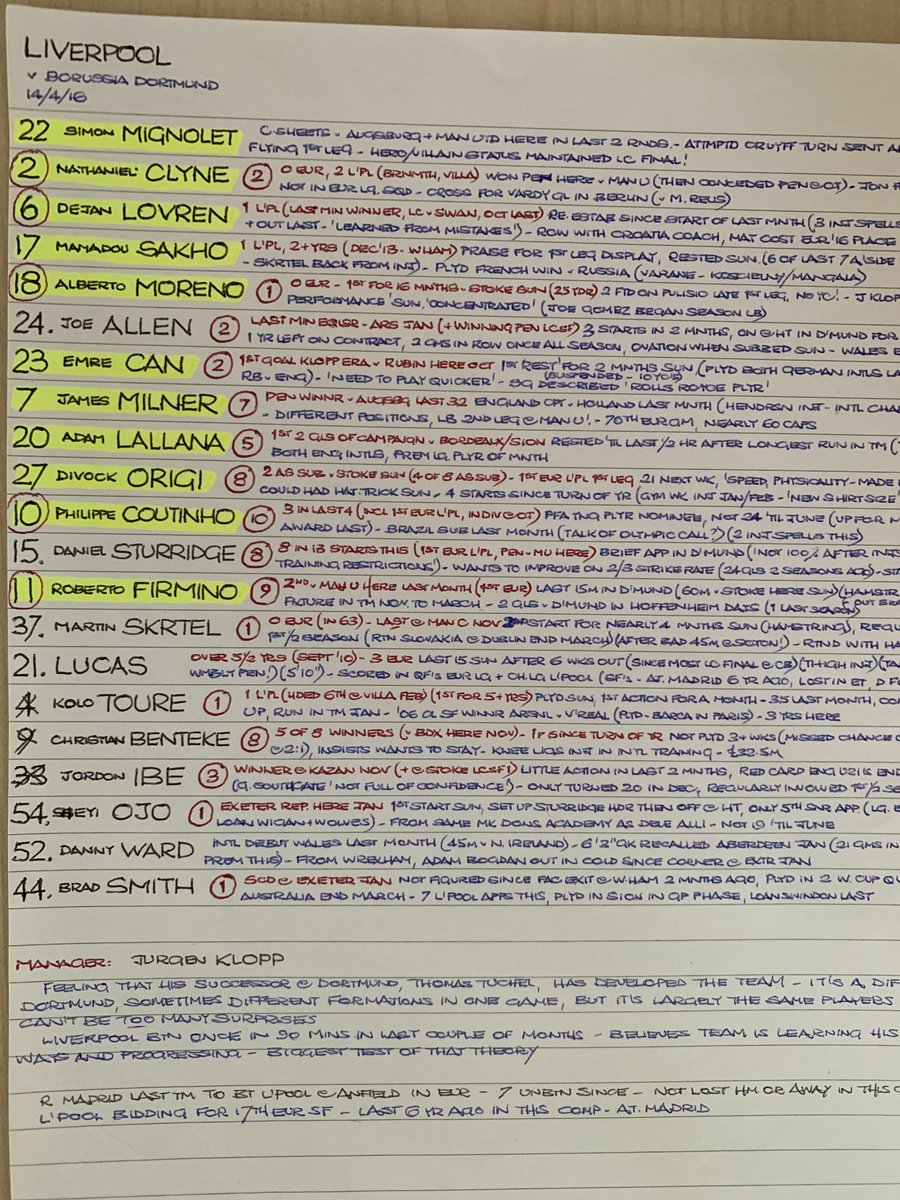 LIVERPOOL
v BORUSSIA DORTMUND
14/4/16
22 SIMON MIGNOLET C.SHEETS v AUGSBURG + MAN UTD HERE IN LAST 2 RNDS - ATTMPTD CRUYFF TURN SENT
FLYING 1ST LEG - HERO/VILLAIN STATUS MAINTAINED LC FINAL!
2 NATHANIEL CLYNE 2 0 EUR, 2 L'PL (BRNMTH, VILLA) WON PEN HERE v MAN U (THEN CONCEDED PEN @ OT) - JON
NOT IN EUR LG SQD - CROSS FOR VARDY GL IN BERLIN (v M. REUS)
6 DEJAN LOVREN 1 L'PL (LAST MIN WINNER, LC v SWAN, OCT LAST) RE.ESTAB SINCE START OF LAST MNTH (3 INJ SPELLS
+ OUT LAST - 'LEARNED FROM MISTAKES') - ROW WITH CROATIA COACH, MAY COST EUR '16 PLACE
17 MAMADOU SAKHO 1 L'PL, 2+ YRS (DEC '13 - WHAM) PRAISE FOR 1ST LEG DISPLAY, RESTED SUN. (6 OF LAST 7 A'SIDE
- SKRTEL BACK FROM INJ) - PLYD FRENCH WIN v RUSSIA (VARANE - KOSCIELNY/MANGALA)
18 ALBERTO MORENO 1 0 EUR - 1ST FOR 16 MNTHS - STOKE SUN (25 YDR) 2 FTD ON PULISIC LATE 1ST LEG, NO YC! - J KLOP
PERFORMANCE 'SUN, 'CONCENTRATED' (JOE GOMEZ BEGAN SEASON LB)
24. JOE ALLEN 2 LAST MIN EQLSR - ARS JAN (+ WINNING PEN LCSF) 3 STARTS IN 2 MNTHS, ON @ HT IN D'MUND FOR
1 YR LEFT ON CONTRACT, 2 GMS IN ROW ONCE ALL SEASON, OVATION WHEN SUBBED SUN - WALES
23 EMRE CAN 2 1ST GOAL KLOPP ERA - RUBIN HERE OCT 1ST 'REST' FOR 2 MNTHS SUN (PLYD BOTH GERMAN INTLS
(SUSPENDED - 10 YCS)
RB v ENG) - 'NEED TO PLAY QUICKER' - SG DESCRIBED 'ROLLS ROYCE PLYR'
7 JAMES MILNER 7 PEN WINNR - AUGSBG LAST 32 ENGLAND CPT - HOLLAND LAST MNTH (HENDRSN INJ - INTL
- DIFFERENT POSITIONS, LB 2ND LEG @ MAN U! - 70TH EUR GM, NEARLY 60 CAPS
20 ADAM LALLANA 5 1ST 2 GLS OF CAMPAIGN v BORDEAUX/SION RESTED 'TIL LAST 1/2 HR AFTER LONGEST RUN IN TM
BOTH ENG INTLS, PREM LG. PLYR OF MNTH
27 DIVOCK ORIGI 8 2 AS SUB v STOKE SUN (4 OF 8 AS SUB) - 1ST EUR L'PL 1ST LEG 21 NEXT WK, 'SPEED, PHYSICALITY - MADE
COULD HAD HAT.TRICK SUN - 4 STARTS SINCE TURN OF YR (GYM WK INJ JAN/FEB - 'NEW SHIRT SIZE'
10 PHILIPPE COUTINHO 10 3 IN LAST 4 (INCL 1ST EUR L'PL, INDIV @ OT) PFA YNG PLYR NOMINEE, NOT 24 'TIL JUNE (UP FOR
AWARD LAST) - BRAZIL SUB LAST MONTH (TALK OF OLYMPIC CALL?) (2 INJ SPELLS THIS)
15. DANIEL STURRIDGE 8 8 IN 13 STARTS THIS (1ST EUR L'PL, PEN - MU HERE) BRIEF APP IN D'MUND ('NOT 100% AFTER
TRAINING RESTRICTIONS') - WANTS TO IMPROVE ON 2/3 STRIKE RATE (24 GLS 2 SEASONS AGO)
11 ROBERTO FIRMINO 9 2ND v MAN U HERE LAST MONTH (1ST EUR) LAST 15M IN D'MUND (60M v STOKE HERE SUN) (HAMSTR
FIXTURE IN TM NOV. TO MARCH - 2 GLS v D'MUND IN HOFFENHEIM DAYS (1 LAST SEASON)
37. MARTIN SKRTEL 1 0 EUR (IN 63) - LAST @ MAN C NOV START FOR NEARLY 4 MNTHS SUN (HAMSTRING),
1ST 1/2 SEASON (RTN SLOVAKIA @ DUBLIN END MARCH) (AFTER BAD 45M @ SOTON!) - RTND WITH
21. LUCAS OVER 5 1/2 YRS (SEPT '10) - 3 EUR LAST 15 SUN AFTER 6 WKS OUT (SINCE MOST LC FINAL @ CB) (THIGH INJ)
WMBLY PEN!) (5'10") - SCORED IN QF'S EUR LG + CH.LG L'POOL (SF'S - AT. MADRID 6 YR AGO, LOST IN ET,
4 KOLO TOURE 1 1 L'PL (4DED 6TH @ VILLA FEB) (1ST FOR 5+ YRS) PLYD SUN, 1ST ACTION FOR A MONTH - 35 LAST MONTH,
UP, RUN IN TM JAN - '06 CL SF WINNR ARSNL - V'REAL (PLYD - BARCA IN PARIS) - 3 YRS HERE
9 CHRISTIAN BENTEKE 8 5 OF 8 WINNERS (v BDX HERE NOV) - 1 SINCE TURN OF YR NOT PLYD 3+ WKS (MISSED CHANCE
@ 2:1), INSISTS WANTS TO STAY - KNEE LIGS INJ IN INTL TRAINING - £32.5M
33 JORDON IBE 3 WINNER @ KAZAN NOV (+ @ STOKE LCSF1) LITTLE ACTION IN LAST 2 MNTHS, RED CARD ENG U21S
(G. SOUTHGATE 'NOT FULL OF CONFIDENCE') - ONLY TURNED 20 IN DEC, REGULARLY INVOLVED 1ST 1/2
54. SHEYI OJO 1 EXETER REP. HERE JAN 1ST START SUN, SET UP STURRIDGE HDR THEN OFF @ HT, ONLY 5TH SNR APP
LOAN WIGAN + WOLVES) - FROM SAME MK DONS ACADEMY AS DELE ALLI - NOT 19 'TIL JUNE
52. DANNY WARD INTL DEBUT WALES LAST MONTH (45M v N. IRELAND) - 6'3" GK RECALLED ABERDEEN JAN (21 GMS IN
PREM THIS) - FROM WREXHAM, ADAM BOGDAN OUT IN COLD SINCE CORNER @ EXTR JAN
44. BRAD SMITH 1 SCD @ EXETER JAN NOT FIGURED SINCE FAC EXIT @ WHAM 2 MNTHS AGO, PLYD IN 2 W. CUP
AUSTRALIA END MARCH - 7 L'POOL APPS THIS, PLYD IN SION IN GP PHASE, LOAN SWINDON LAST
MANAGER: JURGEN KLOPP
FEELING THAT HIS SUCCESSOR @ DORTMUND, THOMAS TUCHEL, HAS DEVELOPED THE TEAM - IT'S A
DORTMUND, SOMETIMES DIFFERENT FORMATIONS IN ONE GAME, BUT IT'S LARGELY THE SAME PLAYERS
CAN'T BE TOO MANY SURPRISES
LIVERPOOL BTN ONCE IN 90 MINS IN LAST COUPLE OF MONTHS - BELIEVES TEAM IS LEARNING HIS
WAYS AND PROGRESSING - BIGGEST TEST OF THAT THEORY
R MADRID LAST TM TO BT L'POOL @ ANFIELD IN EUR - 7 UNBTN SINCE - NOT LOST HM OR AWAY IN THIS
L'POOL BIDDING FOR 17TH EUR SF - LAST 6 YR AGO IN THIS COMP - AT. MADRID